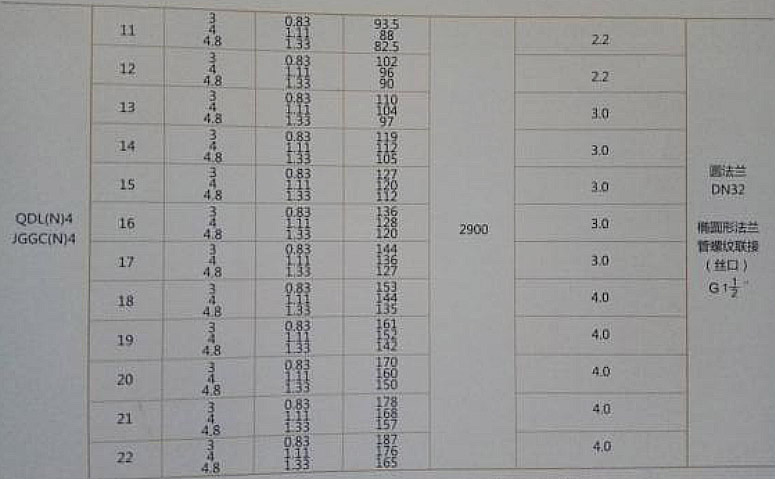 QDL(N)4
JGGC(N)4
11
3
4
4.8
0.83
1.11
1.33
93.5
88
82.5
2.2
12
3
4
4.8
0.83
1.11
1.33
102
96
90
2.2
13
3
4
4.8
0.83
1.11
1.33
110
104
97
3.0
14
3
4
4.8
0.83
1.11
1.33
119
112
105
3.0
15
3
4
4.8
0.83
1.11
1.33
127
120
112
3.0
16
3
4
4.8
0.83
1.11
1.33
136
128
120
3.0
17
3
4
4.8
0.83
1.11
1.33
144
136
127
3.0
18
3
4
4.8
0.83
1.11
1.33
153
144
135
4.0
19
3
4
4.8
0.83
1.11
1.33
161
152
142
4.0
20
3
4
4.8
0.83
1.11
1.33
170
160
150
4.0
21
3
4
4.8
0.83
1.11
1.33
178
168
157
4.0
22
3
4
4.8
0.83
1.11
1.33
187
176
165
4.0
2900
圆法兰
DN32
椭圆形法兰
管螺纹联接
（丝口）
G1½"